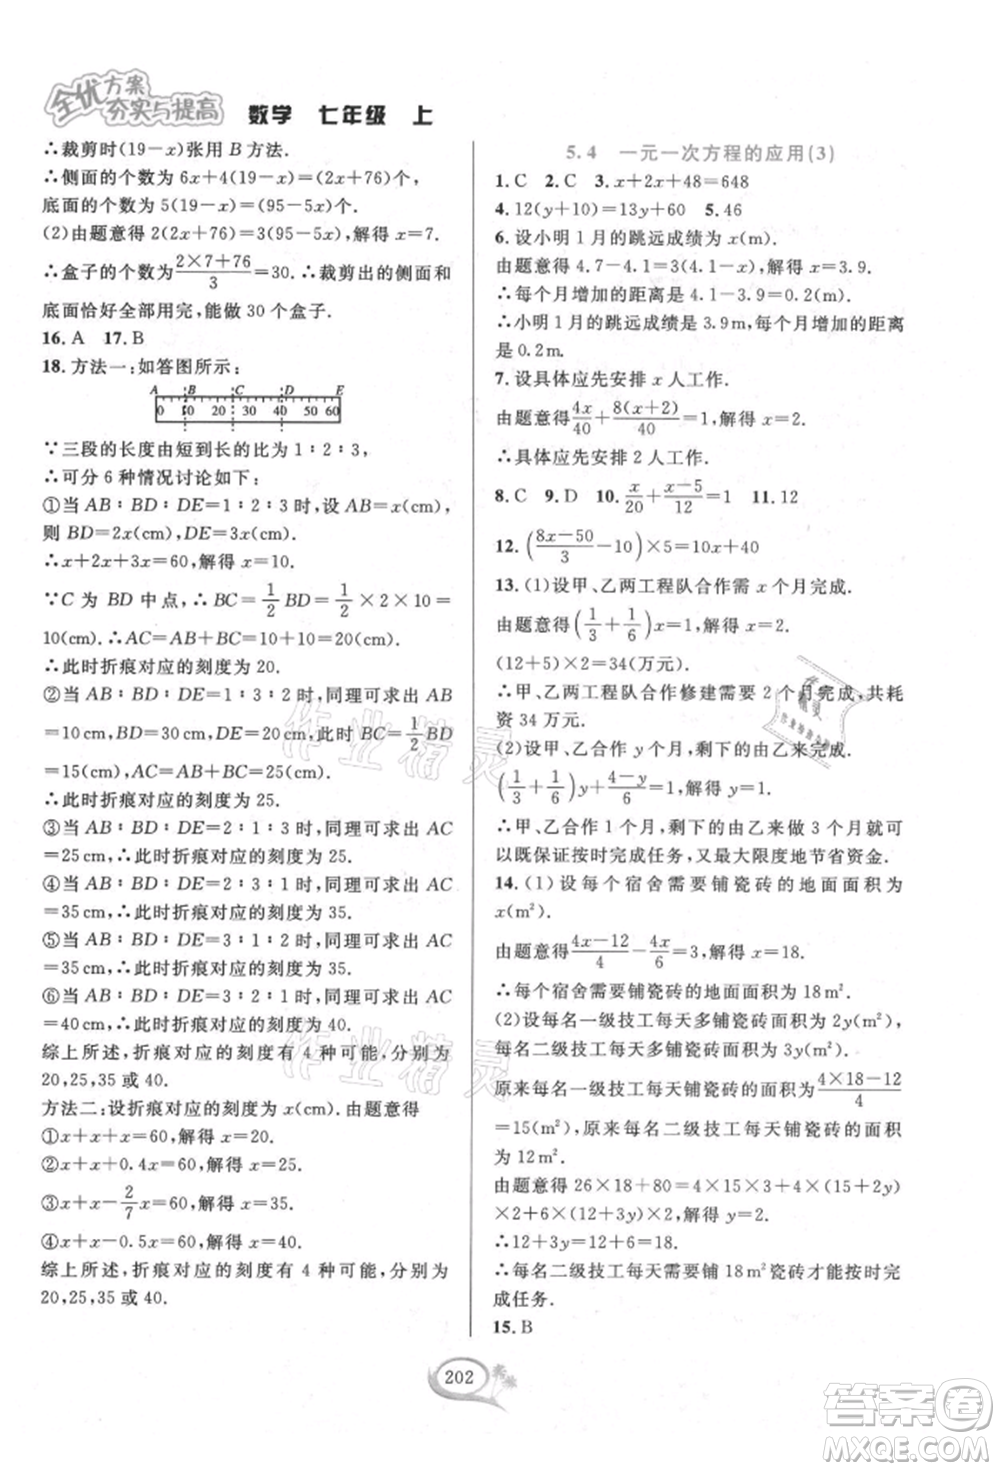 全优方案
夯实与提高
数学 七年级 上
∴裁剪时(19-x)张用 B 方法.
∴侧面的个数为 6x+4(19-x)=(2x+76)个,
底面的个数为 5(19-x)=(95-5x)个.
(2)由题意得 2(2x+76)=3(95-5x),解得 x=7.
∴盒子的个数为(2×7+76)/3=30.∴裁剪出的侧面和
底面恰好全部用完,能做 30 个盒子.
16.A 17.B
18.方法一:如答图所示:
A B C D E
0 10 20 30 40 50 60
∵三段的长度由短到长的比为 1∶2∶3,
∴可分 6 种情况讨论如下:
①当 AB∶BD∶DE=1∶2∶3 时,设 AB=x(cm),
则 BD=2x(cm),DE=3x(cm).
∴x+2x+3x=60,解得 x=10.
∵C 为 BD 中点,∴BC=1/2BD=1/2×2×10=
10(cm).∴AC=AB+BC=10+10=20(cm).
∴此时折痕对应的刻度为 20.
②当 AB∶BD∶DE=1∶3∶2 时,同理可求出 AB
=10(cm),BD=30(cm),此时 BC=1/2BD
=15(cm),AC=AB+BC=25(cm).
∴此时折痕对应的刻度为 25.
③当 AB∶BD∶DE=2∶1∶3 时,同理可求出 AC
=25cm,∴此时折痕对应的刻度为 25.
④当 AB∶BD∶DE=2∶3∶1 时,同理可求出 AC
=35cm,∴此时折痕对应的刻度为 35.
⑤当 AB∶BD∶DE=3∶1∶2 时,同理可求出 AC
=35cm,∴此时折痕对应的刻度为 35.
⑥当 AB∶BD∶DE=3∶2∶1 时,同理可求出 AC
=40cm,∴此时折痕对应的刻度为 40.
综上所述,折痕对应的刻度有 4 种可能,分别为
20,25,35 或 40.
方法二:设折痕对应的刻度为 x(cm).由题意得
①x+x+x=60,解得 x=20.
②x+x+0.4x=60,解得 x=25.
③x+x-2/7x=60,解得 x=35.
④x+x-0.5x=60,解得 x=40.
综上所述,折痕对应的刻度有 4 种可能,分别为
20,25,35 或 40.
5.4 一元一次方程的应用(3)
1.C 2.C 3.x+2x+48=648
4.12(y+10)=13y+60 5.46
6.设小明 1 月的跳远成绩为 x(m).
由题意得 4.7-4.1=3(4.1-x),解得 x=3.9.
∴每个月增加的距离是 4.1-3.9=0.2(m).
∴小明 1 月的跳远成绩是 3.9m,每个月增加的距离
是 0.2m.
7.设具体应先安排 x 人工作.
由题意得4x/40+8(x+2)/40=1,解得 x=2.
∴具体应先安排 2 人工作.
8.C 9.D 10.x/20+(x-5)/12=1 11.12
12.((8x-50)/3-10)×5=10x+40
13.(1)设甲、乙两工程队合作需 x 个月完成.
由题意得(1/3+1/6)x=1,解得 x=2.
(12+5)×2=34(万元).
∴甲、乙两工程队合作修建需要 2 个月完成,共耗
资 34 万元.
(2)设甲、乙合作 y 个月,剩下的由乙来完成.
(1/3+1/6)y+(4-y)/6=1,解得 y=1.
∴甲、乙合作 1 个月,剩下的由乙来做 3 个月就可
以既保证按时完成任务,又最大限度地节省资金.
14.(1)设每个宿舍需要铺瓷砖的地面面积为
x(m²).
由题意得(4x-12)/4-4x/6=3,解得 x=18.
∴每个宿舍需要铺瓷砖的地面面积为 18m².
(2)设每名一级技工每天多铺瓷砖面积 2y(m²),
每名二级技工每天多铺瓷砖面积 3y(m²).
原来每名一级技工每天铺瓷砖面积为(4×18-12)/4
=15(m²),原来每名二级技工每天铺瓷砖的面积
为 12m².
由题意得 26×18+80=4×5×15+4×(15+2y)
×2+6×(12+3y)×2,解得 y=1.
∴12+3y=12+3=15(m²).
∴每名二级技工每天需要铺 18m²瓷砖才能按时完
成任务.
15.B
202
作业精灵
作业精灵
答案卷
MXQE.COM